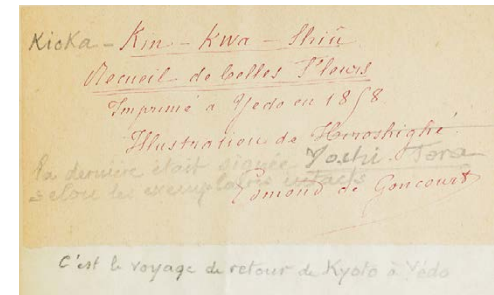 Kicka - Km - Kwa - Shiû
Recueil de belles Fleurs
Imprimé à Yedo en 1858.
Illustration de Hiroshighé.
la dernière était signée Yoshi Tora
selon les exemplaires intacts
Edmond de Goncourt
C'est le voyage de retour de Kyoto à Yédo